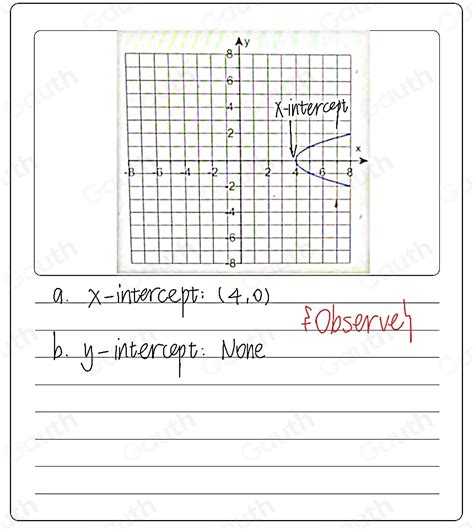 y
8
6
4
x-intercept
2
x
-8 -6 -4 -2 2 4 6 8
-2
-4
-6
-8
a. x-intercept: (4,0)
{Observe}
b. y-intercept: None
Gauth